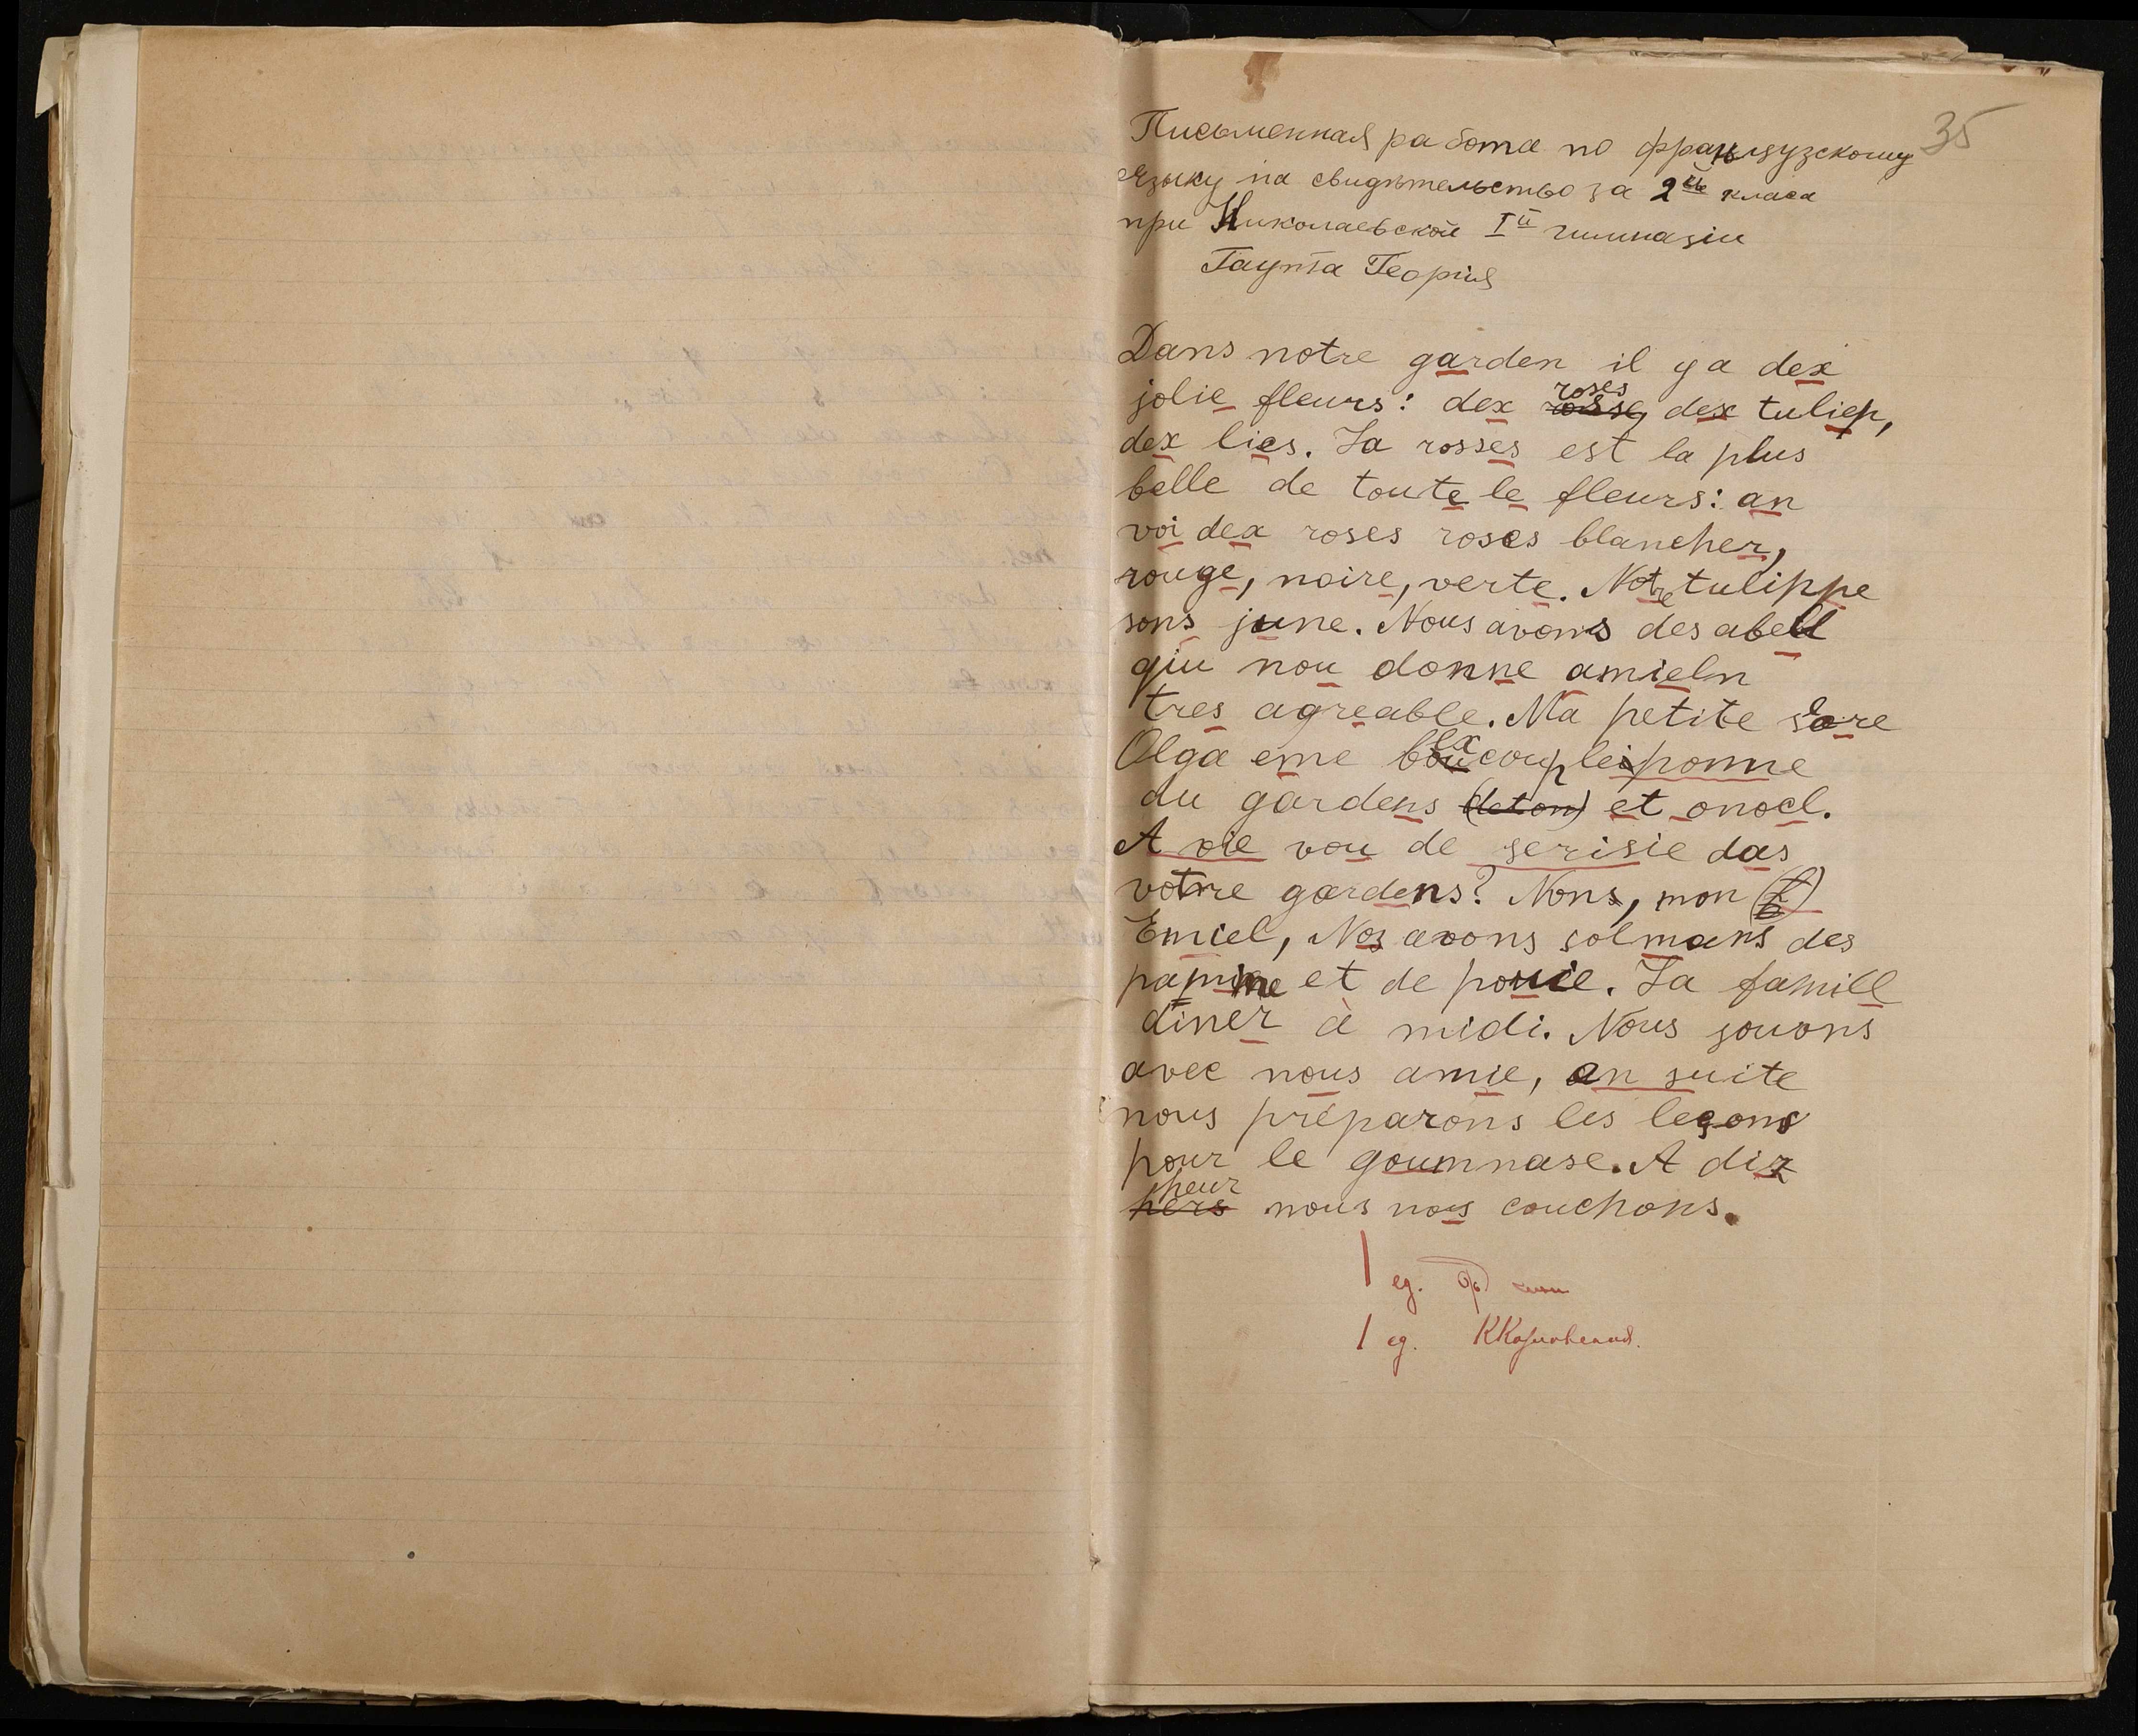 35
Письменная работа по французскому
языку на свидѣтельство за 2ой класа
при Николаевской Iй гимназіи
Гаупта Георгія
Dans notre garden il ya dex
jolie fleurs: dex roses dex tuliep,
dex lies. La rosses est la plus
belle de toute le fleurs: an
voi dex roses roses blancher,
rouge, noire, verte. Notre tulippe
sons june. Nous avons des abell
qiu nou donne amieln
tres agreable. Ma petite sere
Olga eme bexcoup leiponne
du gardens (deton) et onoel.
A vie vou de serisie das
votre gardens? Nons, mon
Emiel, Nos avons solmans des
pamme et de pouie. La famill
diner à midi. Nous jouons
avec nous amie, an suite
nous préparons les leçons
pour le goumnase. A dix
hers heur nous nous couchons.
1 eд.
1 eд.